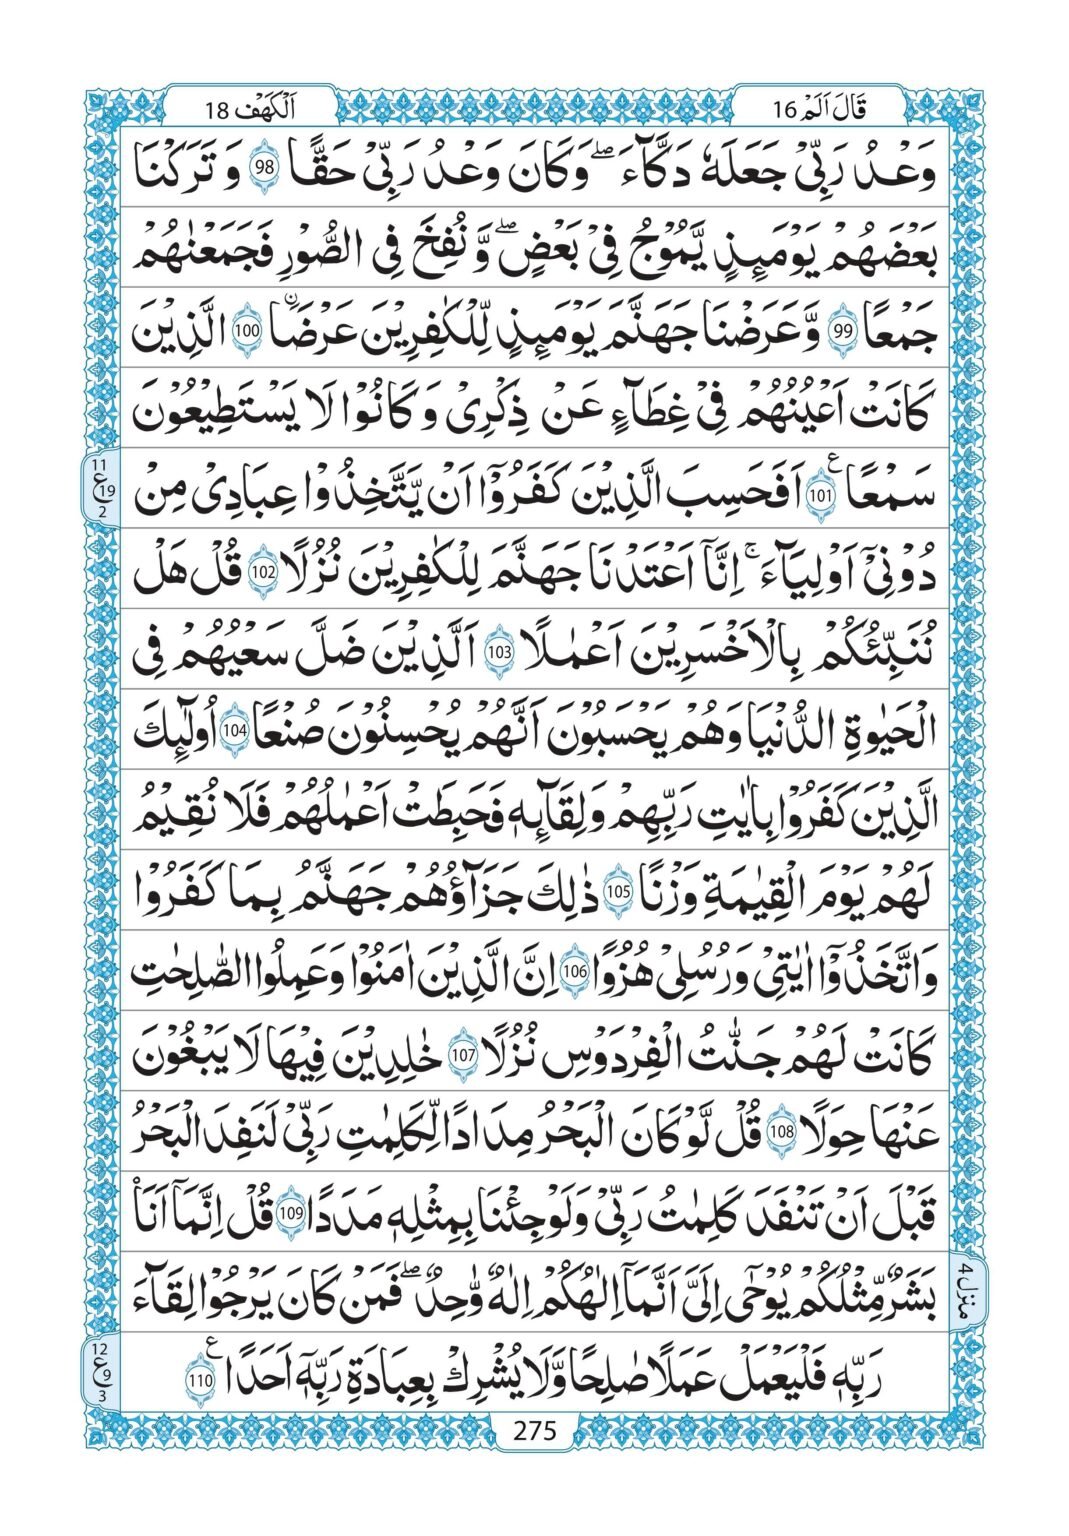 قَالَ اَلَمْ 16
اَلْكَهْف 18
وَعْدُ رَبِّيْ جَعَلَهٗ دَكَّآءَ ۖ وَكَانَ وَعْدُ رَبِّيْ حَقًّا 98 وَ تَرَكْنَا
بَعْضَهُمْ يَوْمَئِذٍ يَّمُوْجُ فِيْ بَعْضٍ ۖ وَّ نُفِخَ فِي الصُّوْرِ فَجَمَعْنٰهُمْ
جَمْعًا 99 وَّ عَرَضْنَا جَهَنَّمَ يَوْمَئِذٍ لِّلْكٰفِرِيْنَ عَرْضًا 100 الَّذِيْنَ
كَانَتْ اَعْيُنُهُمْ فِيْ غِطَآءٍ عَنْ ذِكْرِيْ وَ كَانُوْا لَا يَسْتَطِيْعُوْنَ
سَمْعًا ع 101 اَفَحَسِبَ الَّذِيْنَ كَفَرُوْۤا اَنْ يَّتَّخِذُوْا عِبَادِيْ مِنْ
11
ع 19
2
دُوْنِيْۤ اَوْلِيَآءَ ۚ اِنَّاۤ اَعْتَدْنَا جَهَنَّمَ لِلْكٰفِرِيْنَ نُزُلًا 102 قُلْ هَلْ
نُنَبِّئُكُمْ بِالْاَخْسَرِيْنَ اَعْمٰلًا 103 اَلَّذِيْنَ ضَلَّ سَعْيُهُمْ فِي
الْحَيٰوةِ الدُّنْيَا وَهُمْ يَحْسَبُوْنَ اَنَّهُمْ يُحْسِنُوْنَ صُنْعًا 104 اُولٰٓئِكَ
الَّذِيْنَ كَفَرُوْا بِاٰيٰتِ رَبِّهِمْ وَلِقَآئِهٖ فَحَبِطَتْ اَعْمٰلُهُمْ فَلَا نُقِيْمُ
لَهُمْ يَوْمَ الْقِيٰمَةِ وَزْنًا 105 ذٰلِكَ جَزَآؤُهُمْ جَهَنَّمُ بِمَا كَفَرُوْا
وَاتَّخَذُوْۤا اٰيٰتِيْ وَرُسُلِيْ هُزُوًا 106 اِنَّ الَّذِيْنَ اٰمَنُوْا وَعَمِلُوا الصّٰلِحٰتِ
كَانَتْ لَهُمْ جَنّٰتُ الْفِرْدَوْسِ نُزُلًا 107 خٰلِدِيْنَ فِيْهَا لَا يَبْغُوْنَ
عَنْهَا حِوَلًا 108 قُلْ لَّوْ كَانَ الْبَحْرُ مِدَادًا لِّكَلِمٰتِ رَبِّيْ لَنَفِدَ الْبَحْرُ
قَبْلَ اَنْ تَنْفَدَ كَلِمٰتُ رَبِّيْ وَلَوْ جِئْنَا بِمِثْلِهٖ مَدَدًا 109 قُلْ اِنَّمَاۤ اَنَا۠
بَشَرٌ مِّثْلُكُمْ يُوْحٰۤى اِلَيَّ اَنَّمَاۤ اِلٰهُكُمْ اِلٰهٌ وّٰحِدٌ ۖ فَمَنْ كَانَ يَرْجُوْا لِقَآءَ
منزل 4
رَبِّهٖ فَلْيَعْمَلْ عَمَلًا صٰلِحًا وَّلَا يُشْرِكْ بِعِبَادَةِ رَبِّهٖۤ اَحَدًا ع 110
12
ع 9
3
275